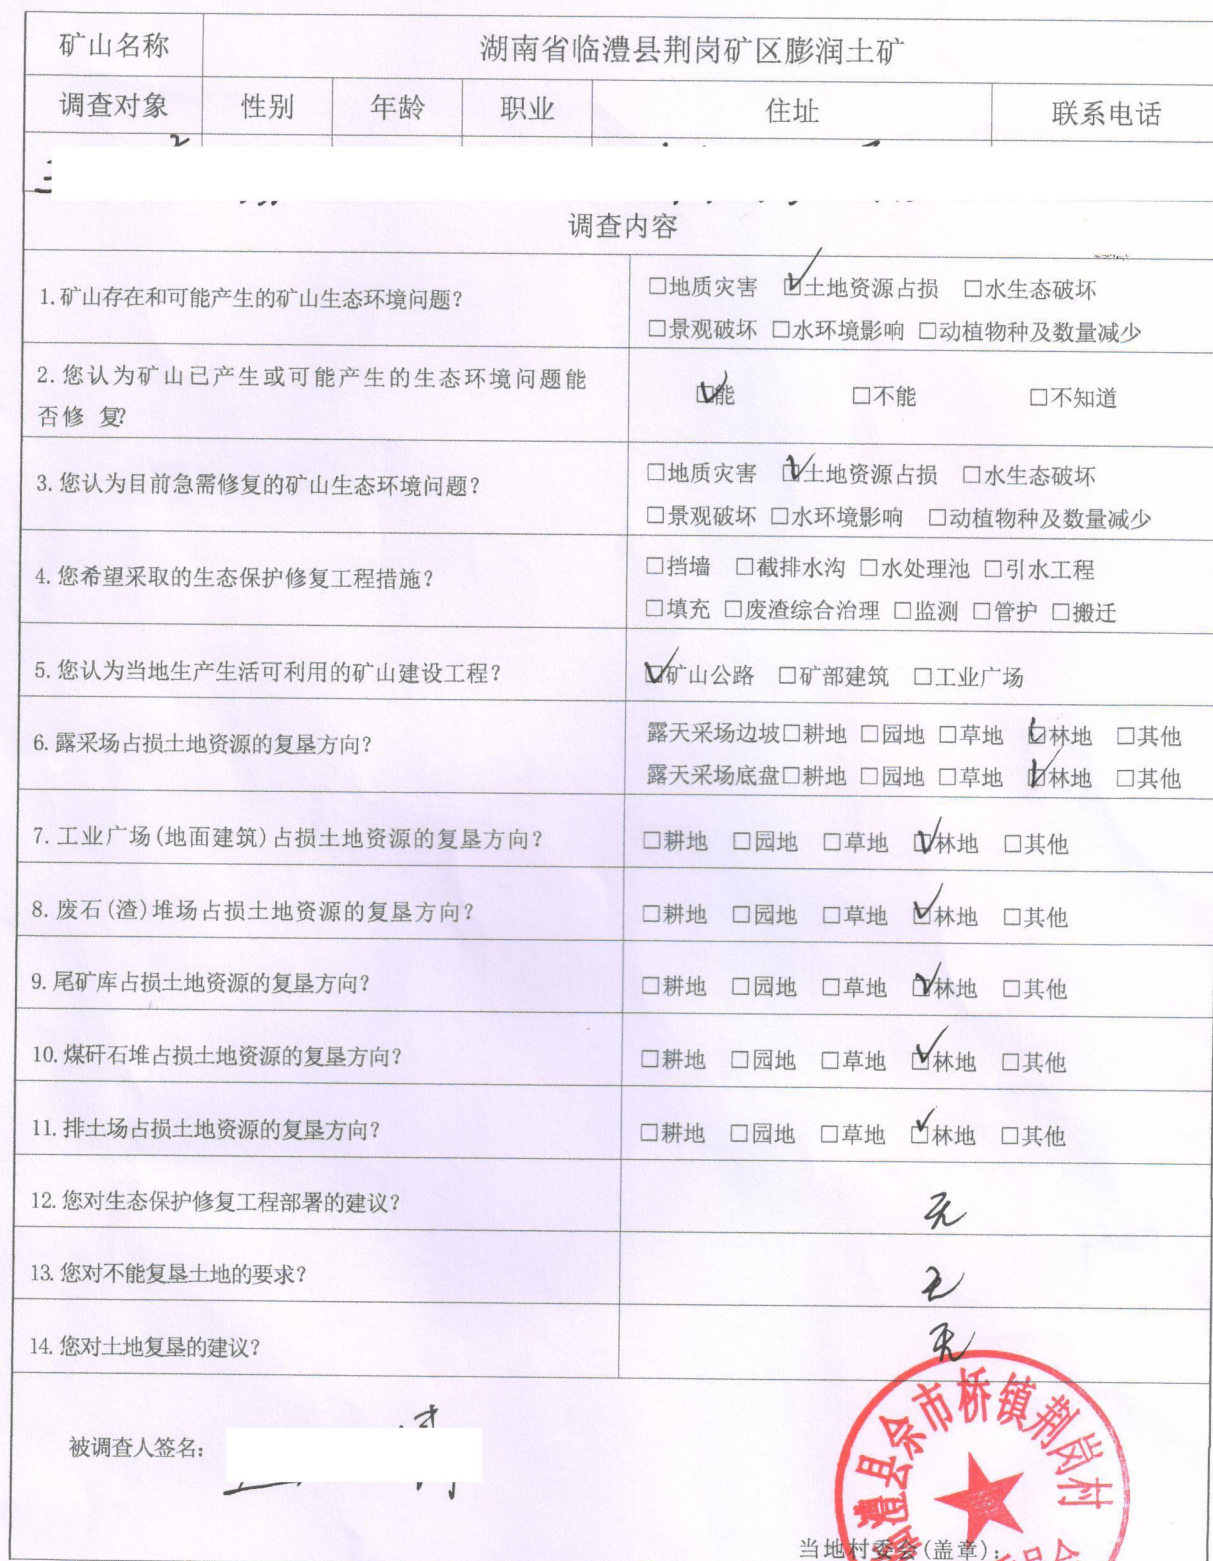 矿山名称 湖南省临澧县荆岗矿区膨润土矿
调查对象 性别 年龄 职业 住址 联系电话
调查内容
1.矿山存在和可能产生的矿山生态环境问题？ □地质灾害 ☑土地资源占损 □水生态破坏
□景观破坏 □水环境影响 □动植物种及数量减少
2.您认为矿山已产生或可能产生的生态环境问题能
否修 复？ ☑能 □不能 □不知道
3.您认为目前急需修复的矿山生态环境问题？ □地质灾害 ☑土地资源占损 □水生态破坏
□景观破坏 □水环境影响 □动植物种及数量减少
4.您希望采取的生态保护修复工程措施？ □挡墙 □截排水沟 □水处理池 □引水工程
□填充 □废渣综合治理 □监测 □管护 □搬迁
5.您认为当地生产生活可利用的矿山建设工程？ ☑矿山公路 □矿部建筑 □工业广场
6.露采场占损土地资源的复垦方向？ 露天采场边坡□耕地 □园地 □草地 ☑林地 □其他
露天采场底盘□耕地 □园地 □草地 ☑林地 □其他
7.工业广场(地面建筑)占损土地资源的复垦方向？ □耕地 □园地 □草地 ☑林地 □其他
8.废石(渣)堆场占损土地资源的复垦方向？ □耕地 □园地 □草地 ☑林地 □其他
9.尾矿库占损土地资源的复垦方向？ □耕地 □园地 □草地 ☑林地 □其他
10.煤矸石堆占损土地资源的复垦方向？ □耕地 □园地 □草地 ☑林地 □其他
11.排土场占损土地资源的复垦方向？ □耕地 □园地 □草地 ☑林地 □其他
12.您对生态保护修复工程部署的建议？ 无
13.您对不能复垦土地的要求？ 无
14.您对土地复垦的建议？ 无
被调查人签名：
澧县佘市桥镇荆岗村
当地村委会(盖章)：